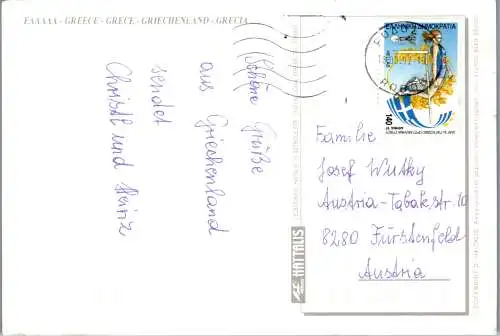 ΕΛΛΑΔΑ - GREECE - GRECE - GRIECHENLAND - GRECIA
Schöne Grüße
aus Griechenland
sendet
Christl und Heinz
ΕΛΛΗΝΙΚΗ ΔΗΜΟΚΡΑΤΙΑ
140
Familie
Josef Wutky
Austria-Tabakstr. 10
8280 Fürstenfeld
Austria
HAITALIS